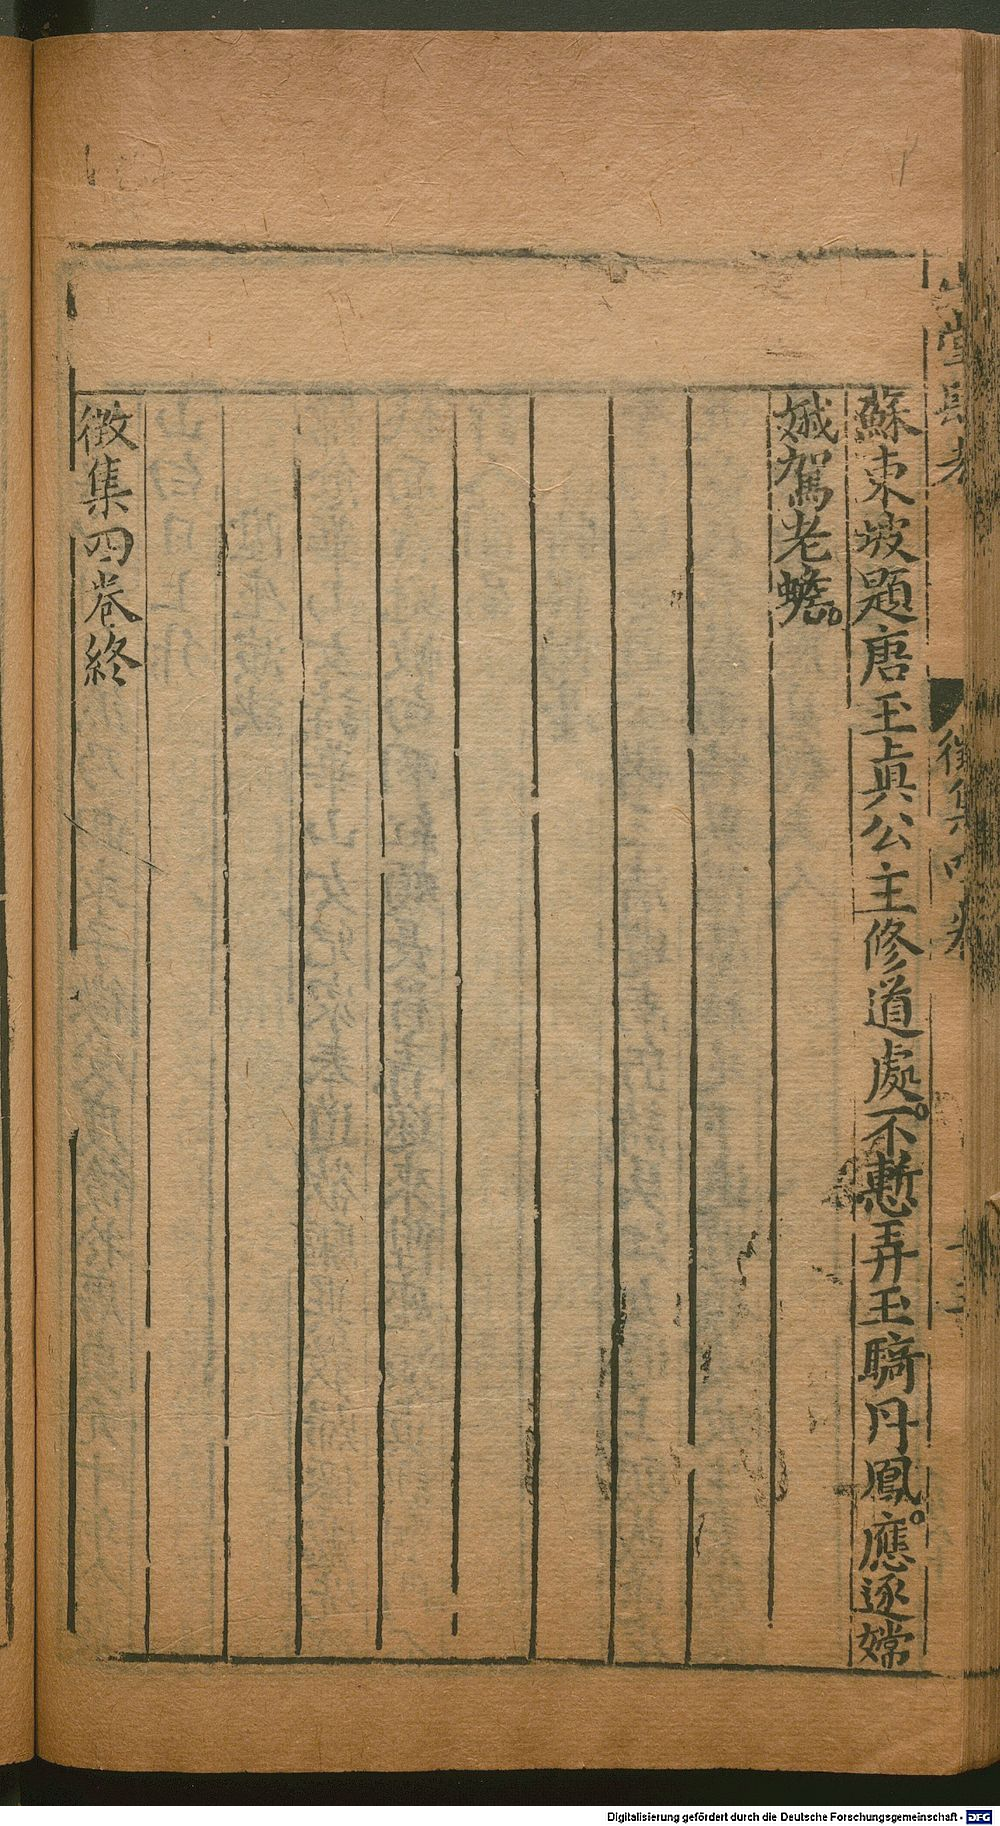 蘇東坡題唐玉眞公主修道處。不慙弄玉騎丹鳳。應逐嫦
娥駕老蟾。
徵集四卷終
Digitalisierung gefördert durch die Deutsche Forschungsgemeinschaft - DFG